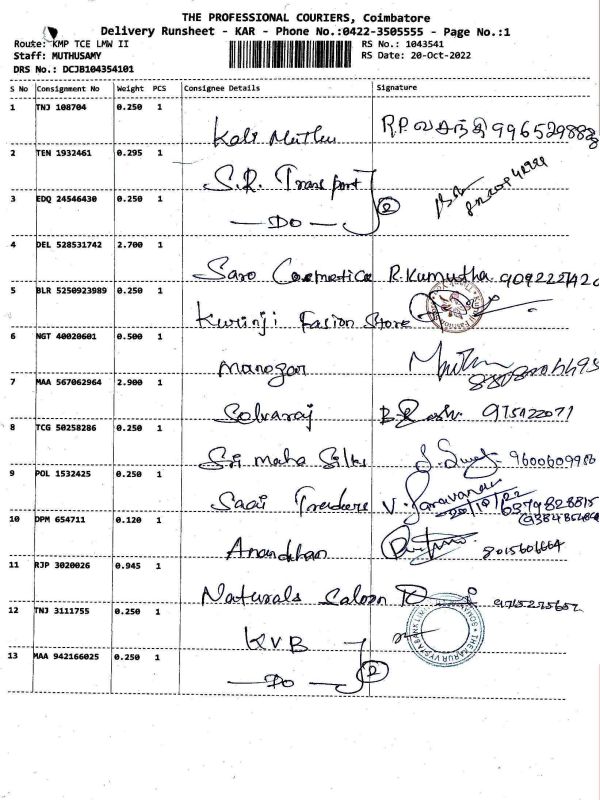 THE PROFESSIONAL COURIERS, Coimbatore
Delivery Runsheet - KAR - Phone No.:0422-3505555 - Page No.:1
Route: KMP TCE LMW II
RS No.: 1043541
Staff: MUTHUSAMY
RS Date: 20-Oct-2022
DRS No.: DCJB104354101
S No Consignment No Weight PCS Consignee Details Signature
1 TNJ 108704 0.250 1
Kali Muthu R.P வசந்தி
2 TEN 1932461 0.295 1
S.R. Transport
3 EDQ 24546430 0.250 1
— Do — 2
4 DEL 528531742 2.700 1
Saro Cosmetica R. Kumutha
5 BLR 5250923989 0.250 1
Kurinji Fasion Store
6 NGT 40020601 0.500 1
Manogar
7 MAA 567062964 2.900 1
Selvaraj
8 TCG 50258286 0.250 1
Sri Maha Silks
9 POL 1532425 0.250 1
Saai Traders V. Saravanan
20/10/22 6379828815
10 DPM 654711 0.120 1
Anandhan 8015601664
11 RJP 3020026 0.945 1
Naturals Saloon
12 TNJ 3111755 0.250 1
KVB
13 MAA 942166025 0.250 1
— Do — 2